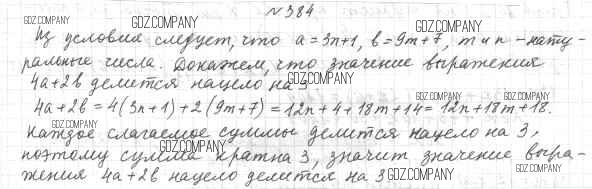 №384.
GDZ.COMPANY GDZ.COMPANY
Из условия следует, что a = 3n+1, b = 9m+7, m и n - нату-
ральные числа. Докажем, что значение выражения
GDZ.COMPANY
4a+2b делится нацело на 3
GDZ.COMPANY GDZ.COMPANY GDZ.COMPANY
4a+2b = 4(3n+1)+2(9m+7) = 12n+4+18m+14 = 12n+18m+18.
GDZ.COMPANY
Каждое слагаемое суммы делится нацело на 3,
GDZ.COMPANY
поэтому сумма кратна 3, значит значение выра-
жения 4a+2b нацело делится на 3
GDZ.COMPANY GDZ.COMPANY GDZ.COMPANY